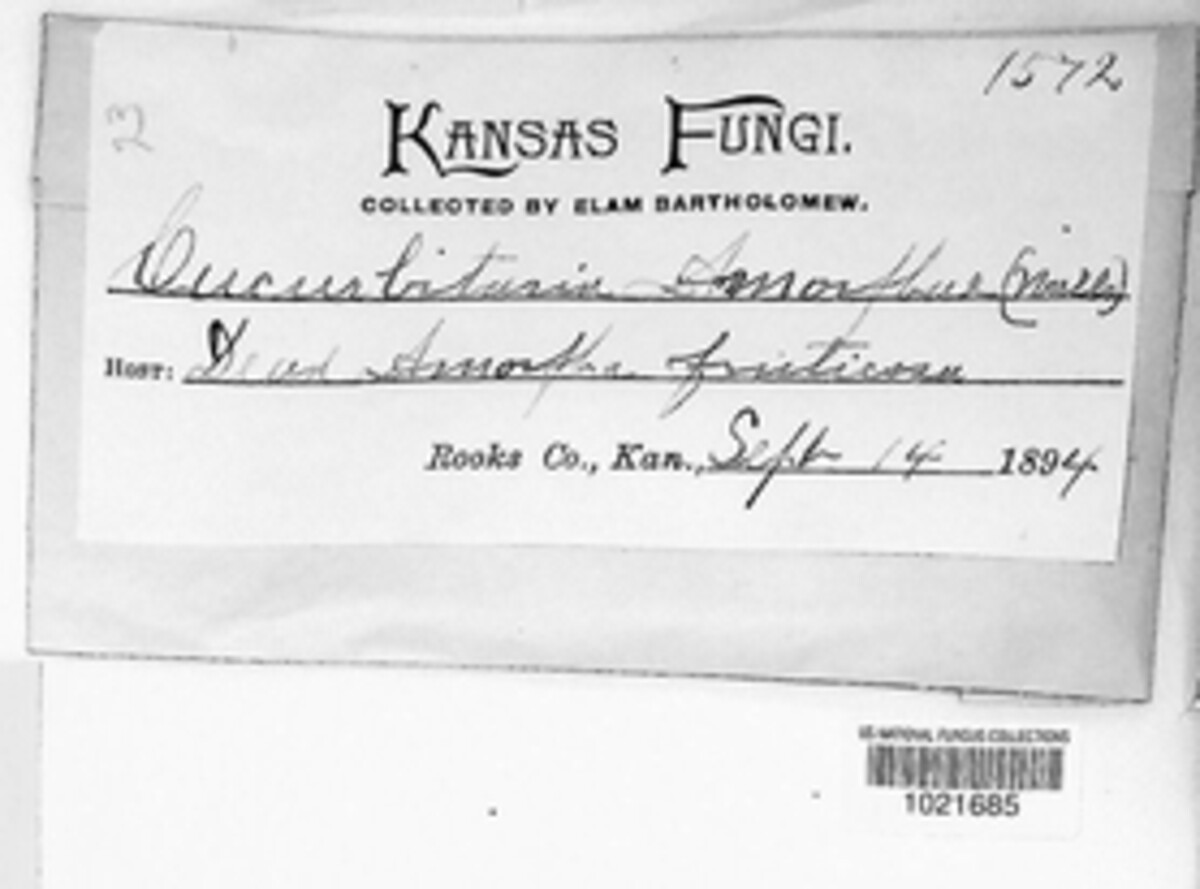 1572
23
KANSAS FUNGI.
COLLECTED BY ELAM BARTHOLOMEW.
Cucurbitaria Amorphae (Wallr)
HOST: Dead Amorpha fruticosa
Rooks Co., Kan., Sept 14 1894
US NATIONAL FUNGUS COLLECTIONS
1021685